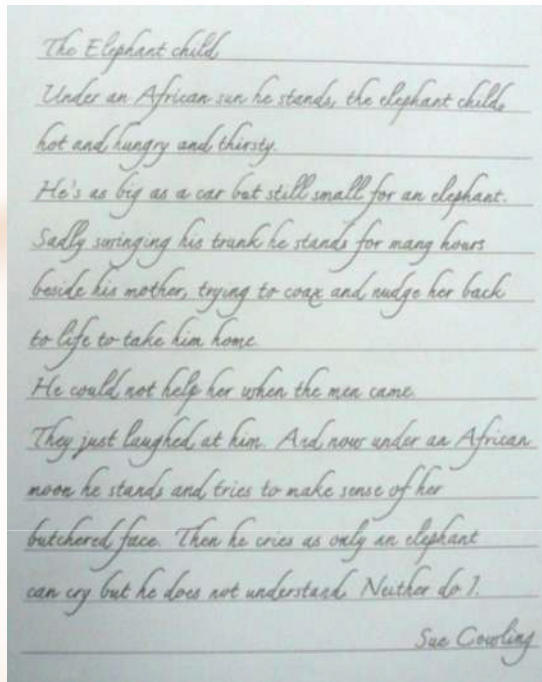 The Elephant child
Under an African sun he stands, the elephant child,
hot and hungry and thirsty.
He's as big as a car but still small for an elephant.
Sadly swinging his trunk he stands for many hours
beside his mother, trying to coax and nudge her back
to life to take him home.
He could not help her when the men came.
They just laughed at him. And now under an African
moon he stands and tries to make sense of her
butchered face. Then he cries as only an elephant
can cry but he does not understand. Neither do I.
Sue Cowling